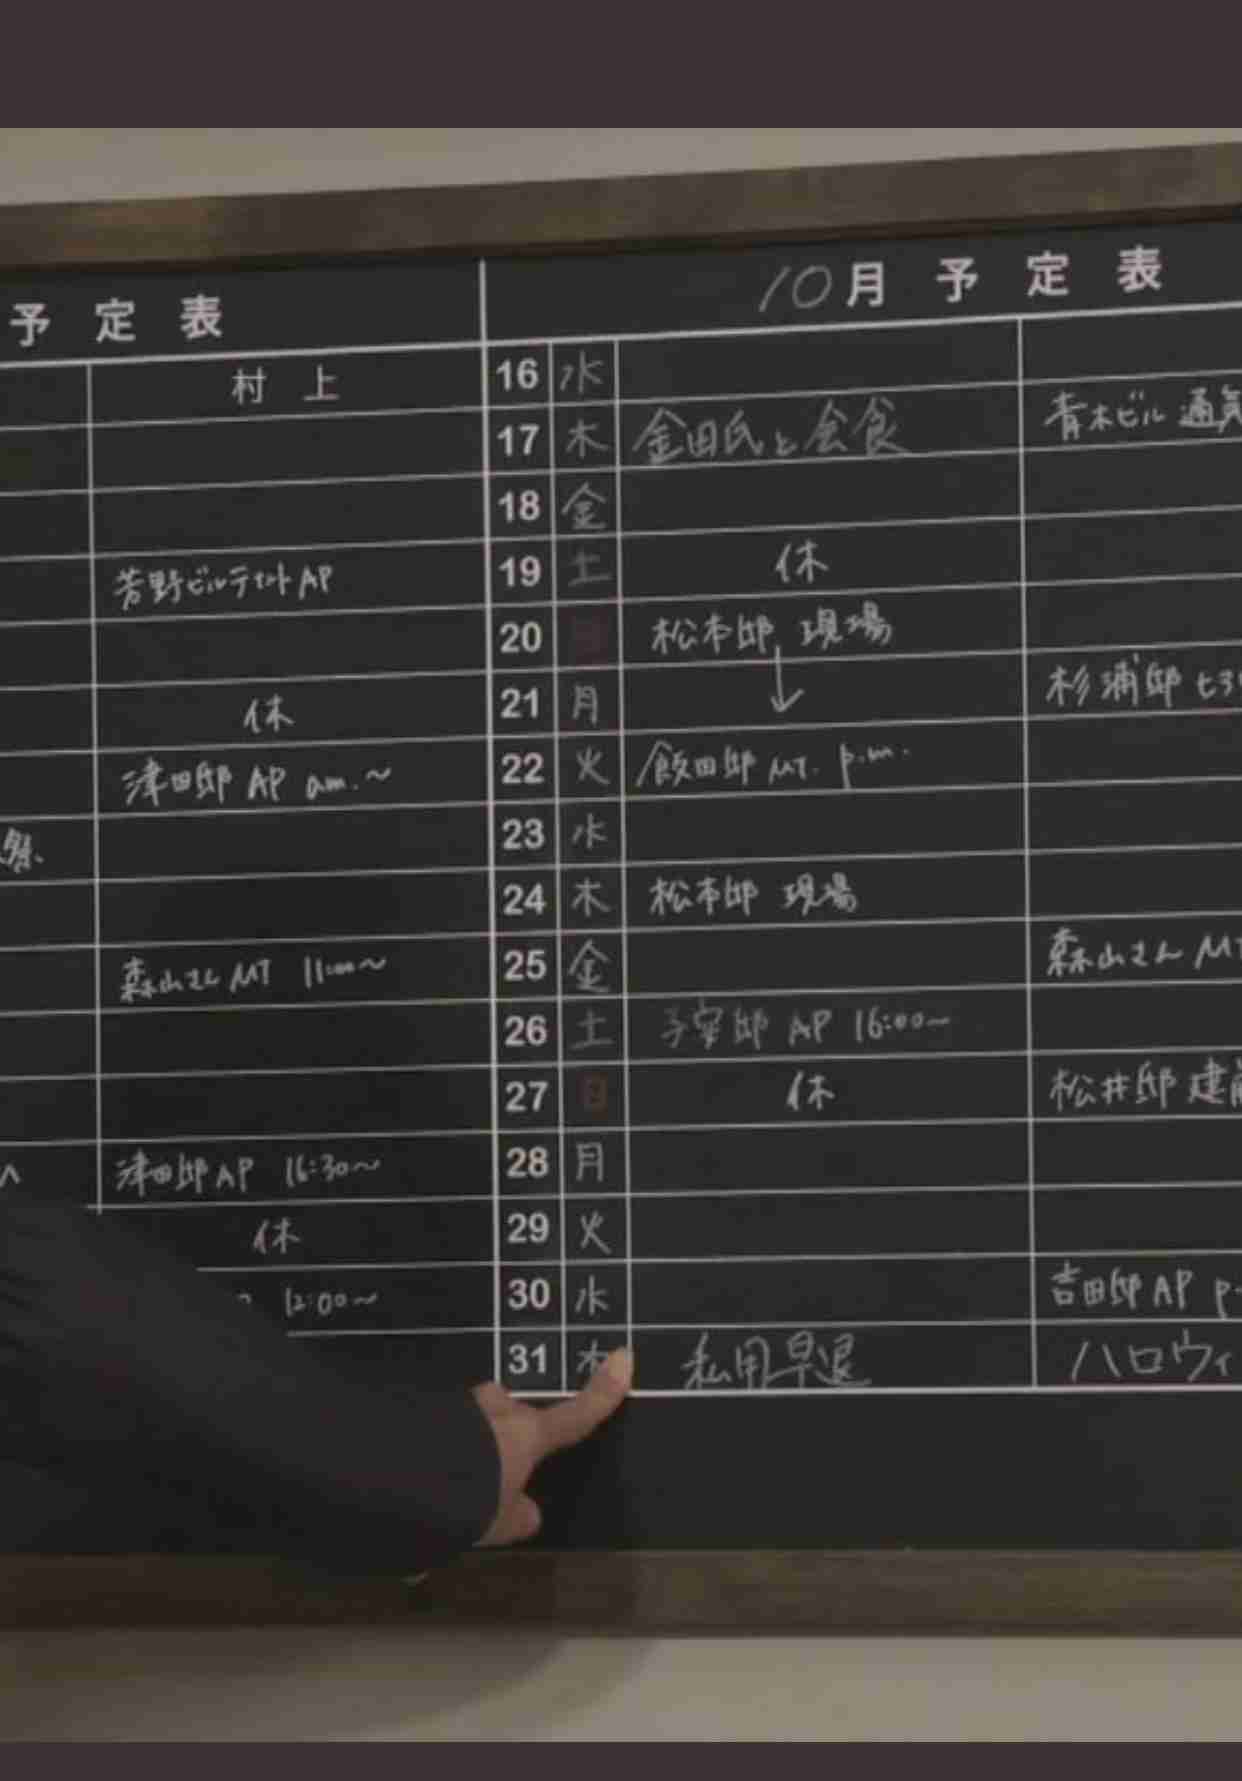 予定表
村上
芳野ビルテナントAP
休
津田邸 AP am.~
森山さん MT
津田邸 AP 16:30~
休
12:00~
10月予定表
16 水
17 木 金田氏と会食 青木ビル 通気
18 金
19 土 休
20 日 松本邸 現場
21 月 ↓ 杉浦邸
22 火 飯田邸 MT. p.m.
23 水
24 木 松本邸 現場
25 金 森山さん MT
26 土 子安邸 AP 16:00~
27 日 休 松井邸 建前
28 月
29 火
30 水 吉田邸 AP p
31 木 私用早退 ハロウィ